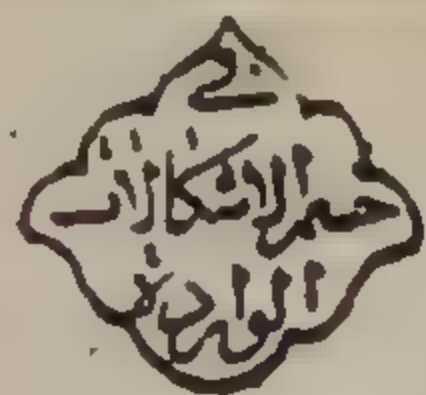 في
حسم الاشكالات
الواردة